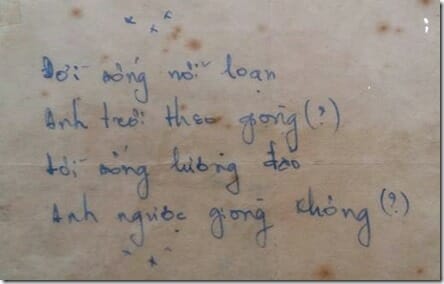 Đời sống nổi loạn
Anh trôi theo giòng (?)
Đời sống lương đao
Anh ngược giòng không (?)